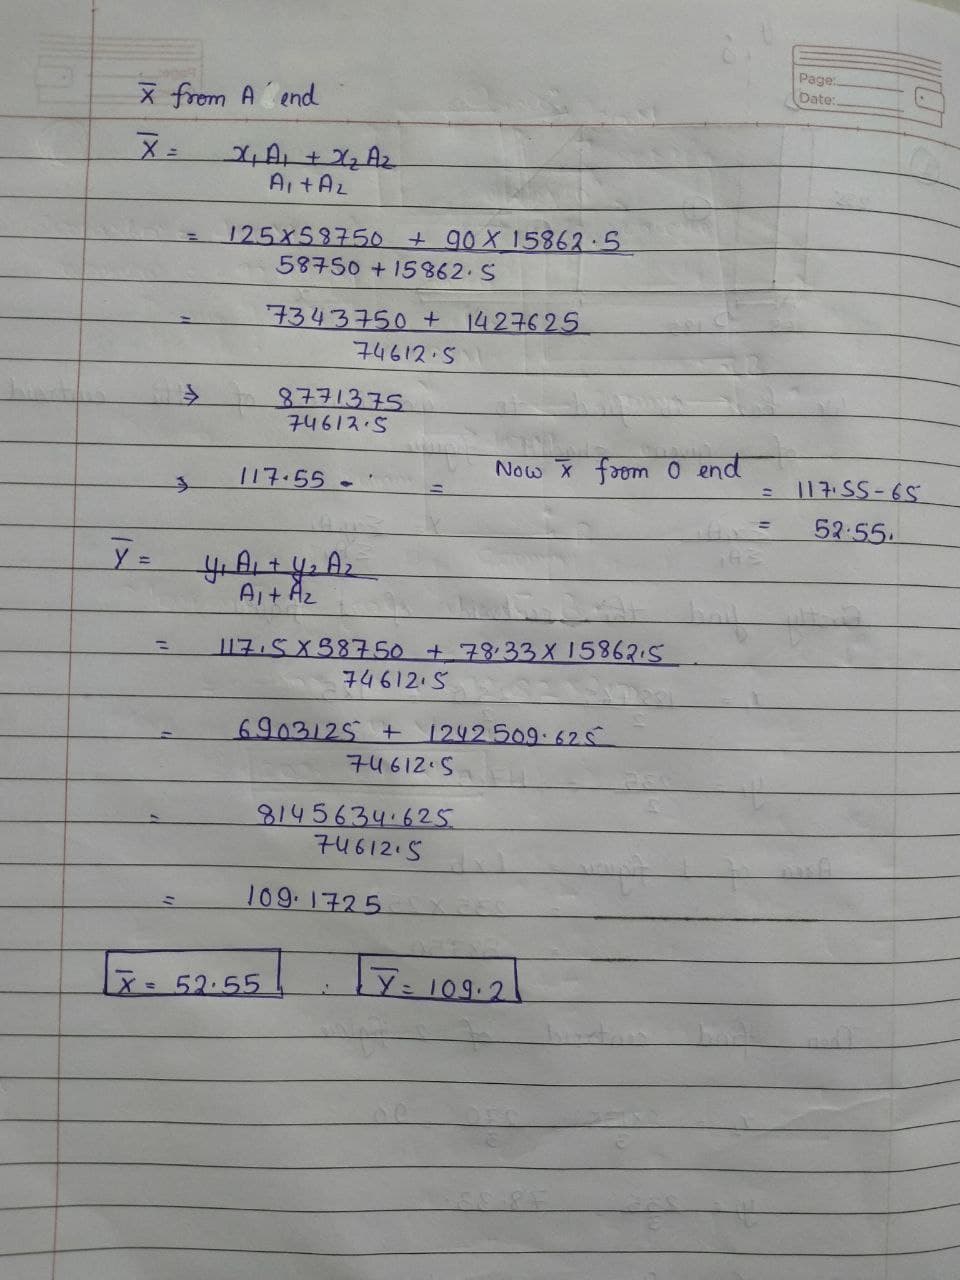 Page:
Date:
x̄ from A end
x̄ = x₁A₁ + x₂A₂
A₁ + A₂
= 125×58750 + 90×15862.5
58750 + 15862.5
= 7343750 + 1427625
74612.5
⇒ 8771375
74612.5
⇒ 117.55 = Now x̄ from O end = 117.55-65
= 52.55.
Y̅ = y₁A₁ + y₂A₂
A₁ + A₂
= 117.5×58750 + 78.33×15862.5
74612.5
= 6903125 + 1242509.625
74612.5
= 8145634.625
74612.5
= 109.1725
x̄ = 52.55 . Y̅ = 109.2